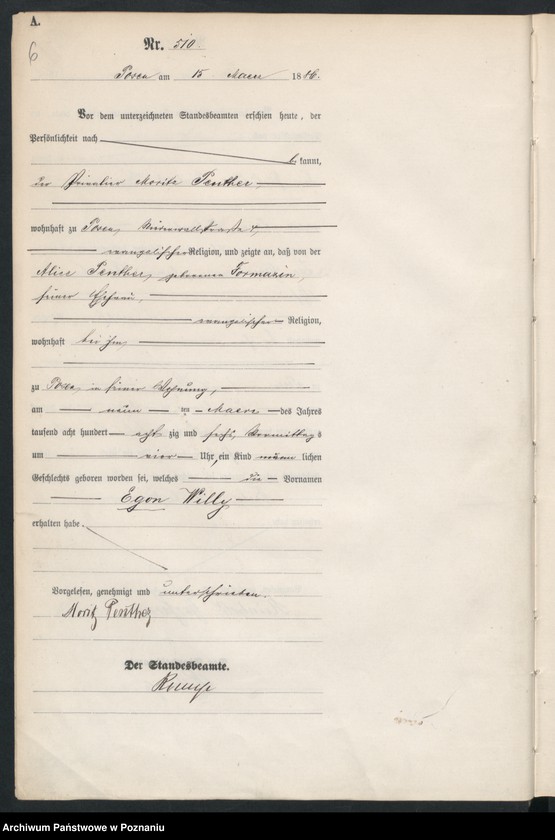 A.
6
Nr. 510.
Posen am 15 Maerz 1886.
Vor dem unterzeichneten Standesbeamten erschien heute, der
Persönlichkeit nach
be kannt,
der Privatier Moritz Penther
wohnhaft zu Posen,
evangelischer Religion, und zeigte an, daß von der
Alice Penther, geborenen Formazin,
seiner Ehefrau,
evangelischer Religion,
wohnhaft bei ihm,
zu Posen, in seiner Wohnung,
am neun ten Maerz des Jahres
tausend acht hundert acht zig und sechs, Vormittags
um vier Uhr, ein Kind männ lichen
Geschlechts geboren worden sei, welches die Vornamen
Egon Willy
erhalten habe.
Vorgelesen, genehmigt und unterschrieben.
Moritz Penther
Der Standesbeamte.
Archiwum Państwowe w Poznaniu